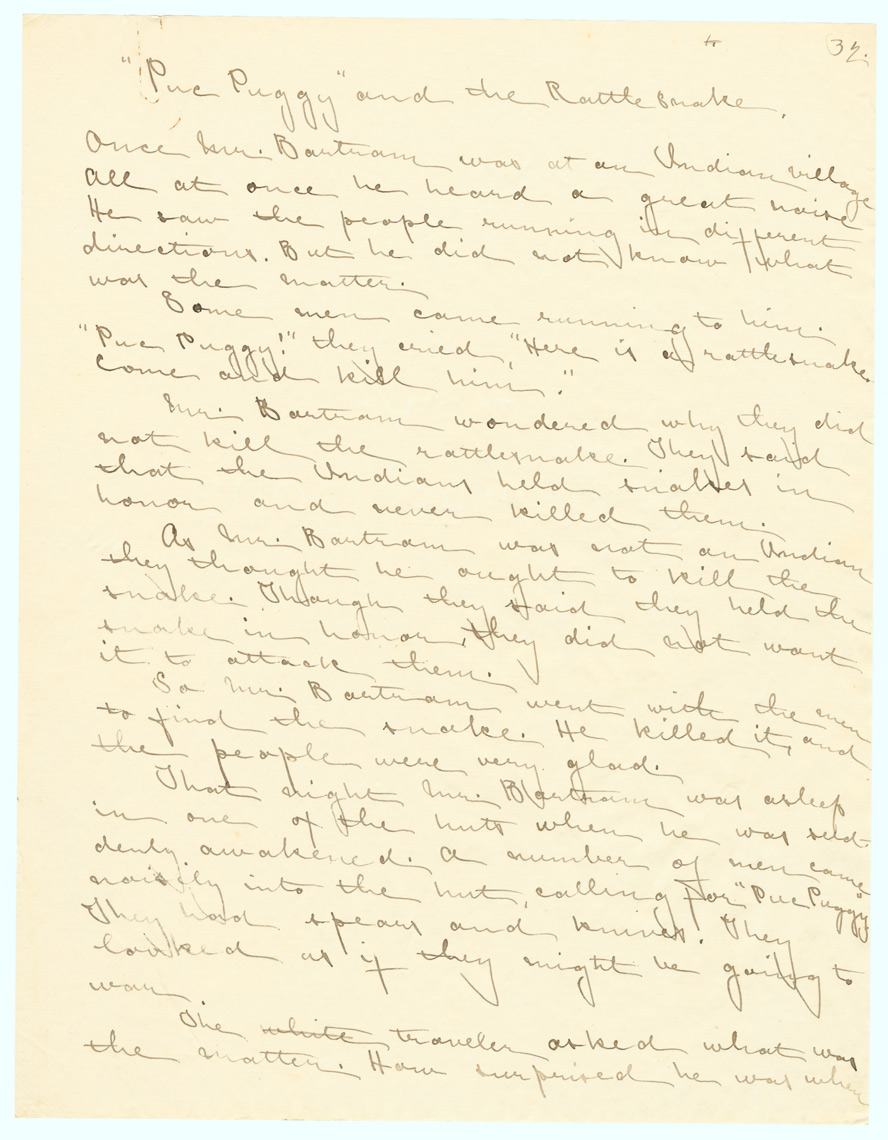 32.
"Puc Puggy" and the Rattlesnake.
Once Mr. Bartram was at an Indian village
All at once he heard a great noise
He saw the people running in different
directions. But he did not know what
was the matter.
Some men came running to him.
"Puc Puggy!" they cried "Here is a rattlesnake.
Come and kill him."
Mr. Bartram wondered why they did
not kill the rattlesnake. They said
that the Indians held snakes in
honor and never killed them.
As Mr. Bartram was not an Indian
they thought he ought to kill the
snake. Though they said they held the
snake in honor, they did not want
it to attack them.
So Mr. Bartram went with the men
to find the snake. He killed it, and
the people were very glad.
That night Mr. Bartram was asleep
in one of the huts when he was sud-
denly awakened. A number of men came
noisily into the hut, calling for "Puc Puggy"
They had spears and knives. They
looked as if they might be going to
war.
The white traveler asked what was
the matter. How surprised he was when